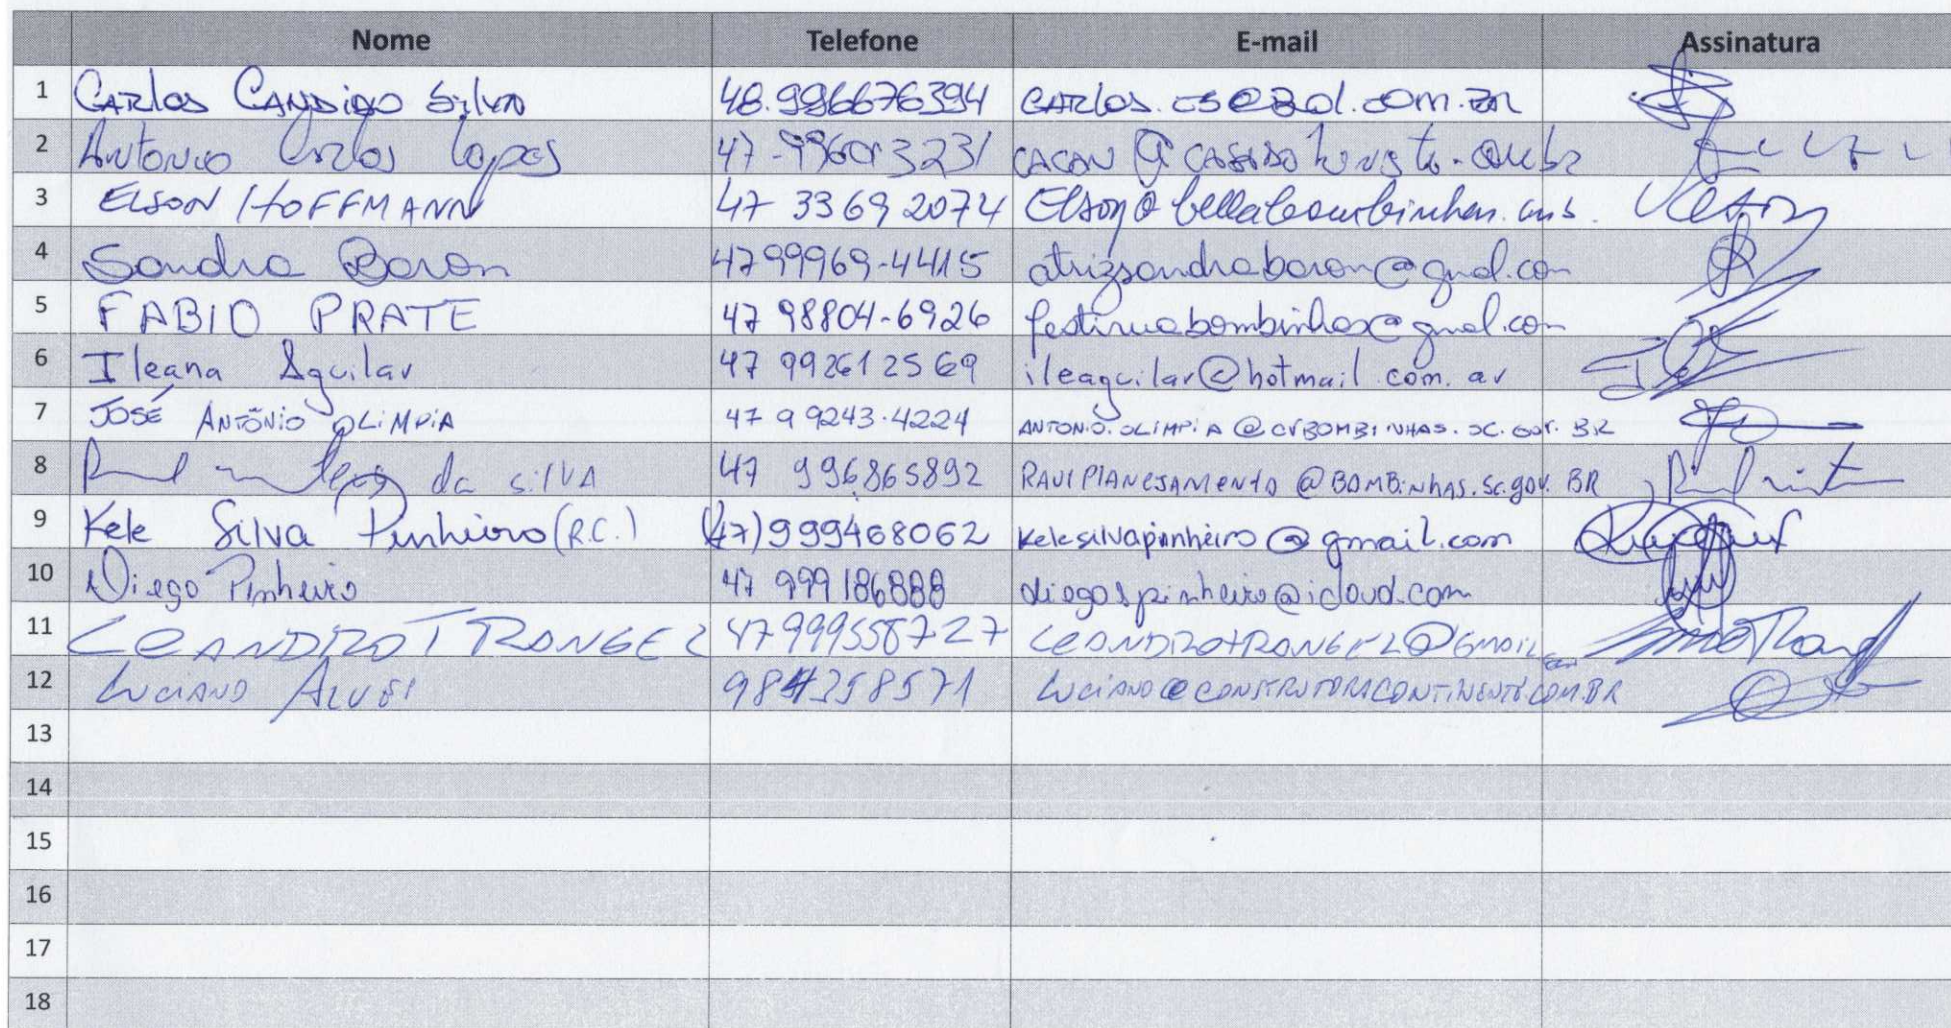 Nome Telefone E-mail Assinatura
1 CARlos CANDIDO SilvA 48.996676394 CARlos.CS@BOl.com.BR
2 Antonio Carlos Lopes 47-996013231 CACAU @
3 ELSON HOFFMANN 47 3369 2074 Elson@
4 Sandra Baron 4799969-4415 atrizsandrabaron@gmal.com
5 FABIO PRATE 47 98804-6926
6 Ileana Aguilar 47 992612569 ileaguilar@hotmail.com.ar
7 JOSÉ ANTÔNIO OLiMPiA 47 9 9243-4224 ANTONIO.OLIMPIA@CVBOMBINHAS.SC.GOV.BR
8 da SilVA 47 996865892 RAUlPlANEJAMENTO @BOMBiNhAS.Sc.gov.BR
9 Kele Silva Pinheiro (R.C.) (47)999468062 kelesilvapinheiro@gmail.com
10 Diego Pinheiro 47 999186888 diegospinheiro@icloud.com
11 LEANDRO T RANGEL 47999558727 LEANDROTRANGEL@GMAIL
12 LUCIANO ALVES LUCIANO@CONSTRUTORACONTINENTE.COM.BR
13
14
15
16
17
18